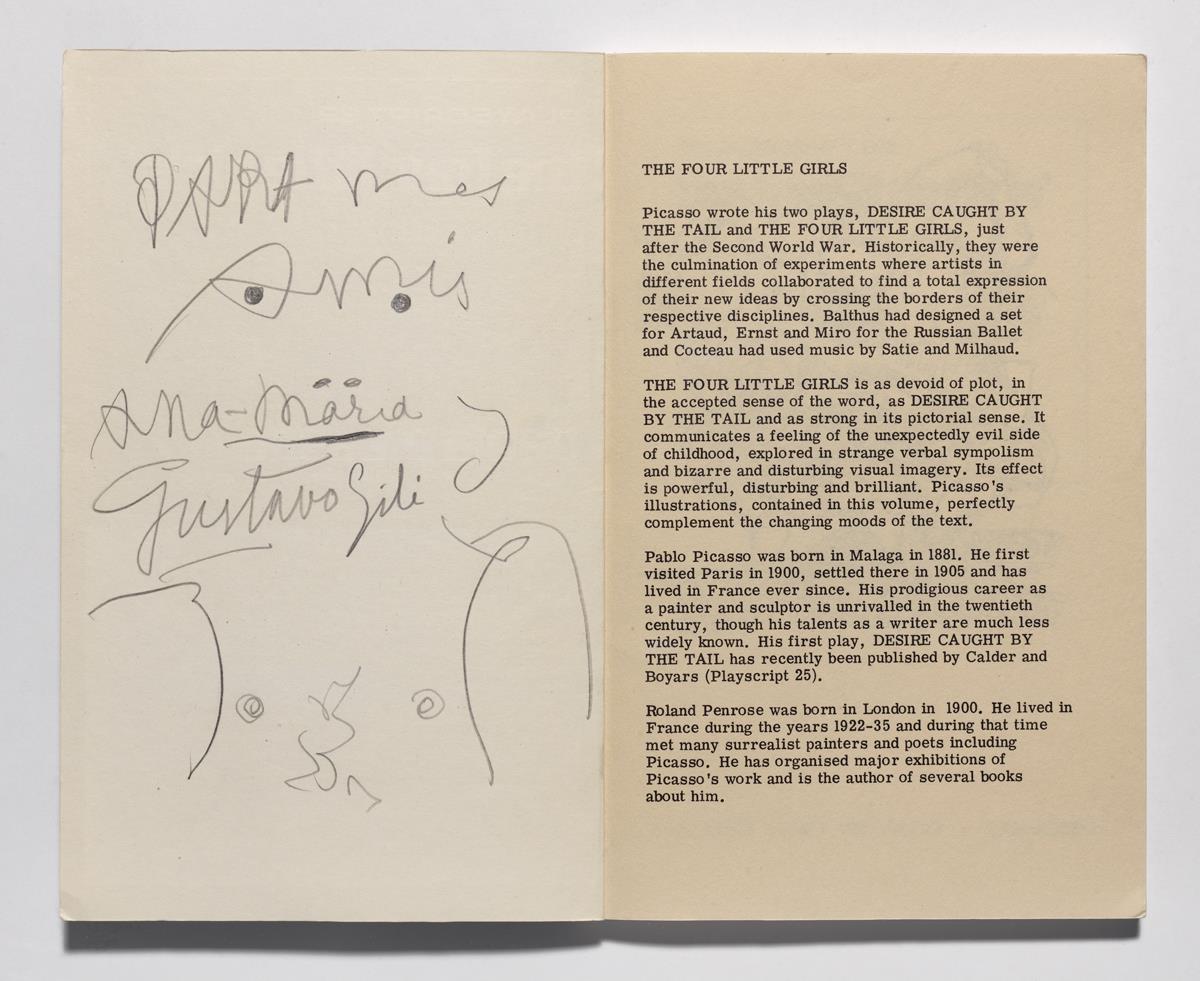 PARA mes
Amis
Ana-María
Gustavo Gili
THE FOUR LITTLE GIRLS
Picasso wrote his two plays, DESIRE CAUGHT BY
THE TAIL and THE FOUR LITTLE GIRLS, just
after the Second World War. Historically, they were
the culmination of experiments where artists in
different fields collaborated to find a total expression
of their new ideas by crossing the borders of their
respective disciplines. Balthus had designed a set
for Artaud, Ernst and Miro for the Russian Ballet
and Cocteau had used music by Satie and Milhaud.
THE FOUR LITTLE GIRLS is as devoid of plot, in
the accepted sense of the word, as DESIRE CAUGHT
BY THE TAIL and as strong in its pictorial sense. It
communicates a feeling of the unexpectedly evil side
of childhood, explored in strange verbal sympolism
and bizarre and disturbing visual imagery. Its effect
is powerful, disturbing and brilliant. Picasso's
illustrations, contained in this volume, perfectly
complement the changing moods of the text.
Pablo Picasso was born in Malaga in 1881. He first
visited Paris in 1900, settled there in 1905 and has
lived in France ever since. His prodigious career as
a painter and sculptor is unrivalled in the twentieth
century, though his talents as a writer are much less
widely known. His first play, DESIRE CAUGHT BY
THE TAIL has recently been published by Calder and
Boyars (Playscript 25).
Roland Penrose was born in London in 1900. He lived in
France during the years 1922-35 and during that time
met many surrealist painters and poets including
Picasso. He has organised major exhibitions of
Picasso's work and is the author of several books
about him.